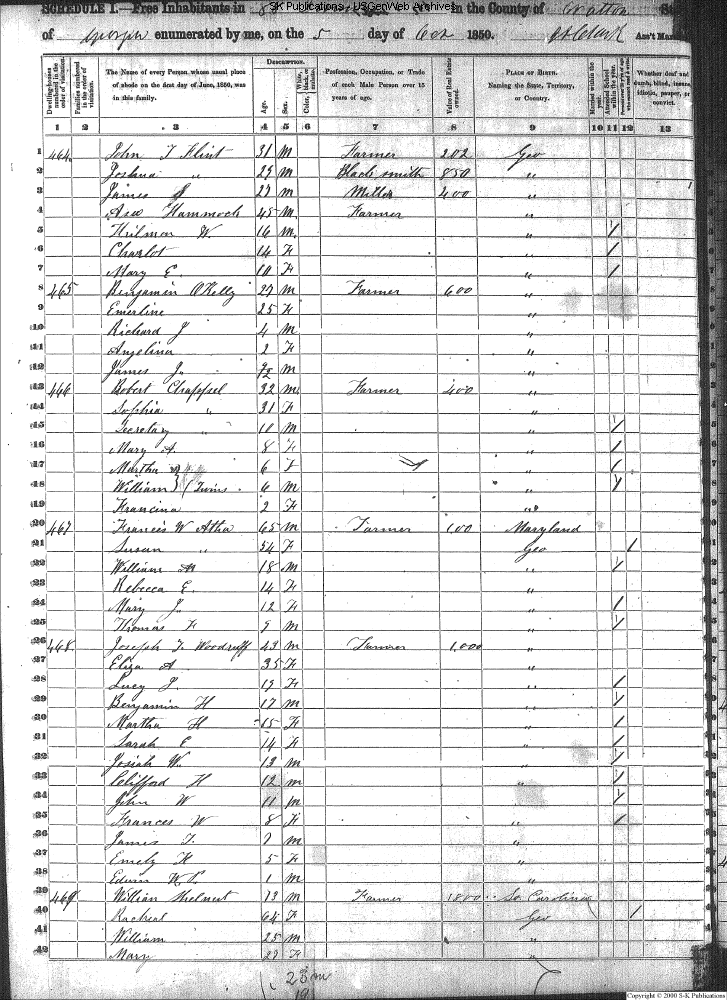 S-K Publications - USGenWeb Archives
SCHEDULE I.—Free Inhabitants in in the County of Walton
of Georgia enumerated by me, on the 5 day of Oct 1850. Ass't
Dwelling-houses numbered in the order of visitation.
Families numbered in the order of visitation.
The Name of every Person whose usual place of abode on the first day of June, 1850, was in this family.
DESCRIPTION.
Age.
Sex.
Color, White, black, or mulatto.
Profession, Occupation, or Trade of each Male Person over 15 years of age.
Value of Real Estate owned.
PLACE OF BIRTH. Naming the State, Territory, or Country.
Married within the year.
Attended School within the year.
Whether deaf and dumb, blind, insane, idiotic, pauper, or convict.
1 2 3 4 5 6 7 8 9 10 11 12 13
1 464 John T Flint 31 M Farmer 202 Geo
2 Joshua " 29 M Black smith 850 "
3 James 27 M Miller 400 "
4 Asa Hammock 45 M Farmer "
5 Hilman W. 16 M " /
6 Charlot 14 F " /
7 Mary E. 10 F " /
8 465 Benjamin OKelly 27 M Farmer 600 "
9 Emerline 25 F "
10 Richard J 4 M "
11 Angelina 2 F "
12 James J. M "
13 466 Robert Chappel 32 M Farmer 400 "
14 Sophia " 31 F "
15 Secretary " 10 M " /
16 Mary A. 8 F " /
17 Martha 6 F " /
18 William } (Twins 6 M " /
19 Francina 2 F "
20 467 Francis W Atha 65 M Farmer 100 Maryland
21 Susan " 54 F Geo /
22 William 18 M " /
23 Rebecca E. 14 F "
24 Mary J. 12 F " /
25 Thomas F 9 M " /
26 468 Joseph T. Woodruff 43 M Farmer 1,000 "
27 Eliza A 35 F "
28 Lucy J 19 F " /
29 Benjamin H 17 M " /
30 Martha H 15 F " /
31 Sarah E 14 F " /
32 Josiah W. 13 M " /
33 Clifford H 12 M " /
34 John W 11 M " /
35 Frances W 8 F " /
36 James T. 7 M "
37 Emely H 5 F "
38 Edwin 1 M "
39 469 William 73 M Farmer 1800 So Carolina
40 Racheal 64 F Geo /
41 William 25 M "
42 Mary 27 F "
23 m
Copyright © 2000 S-K Publications